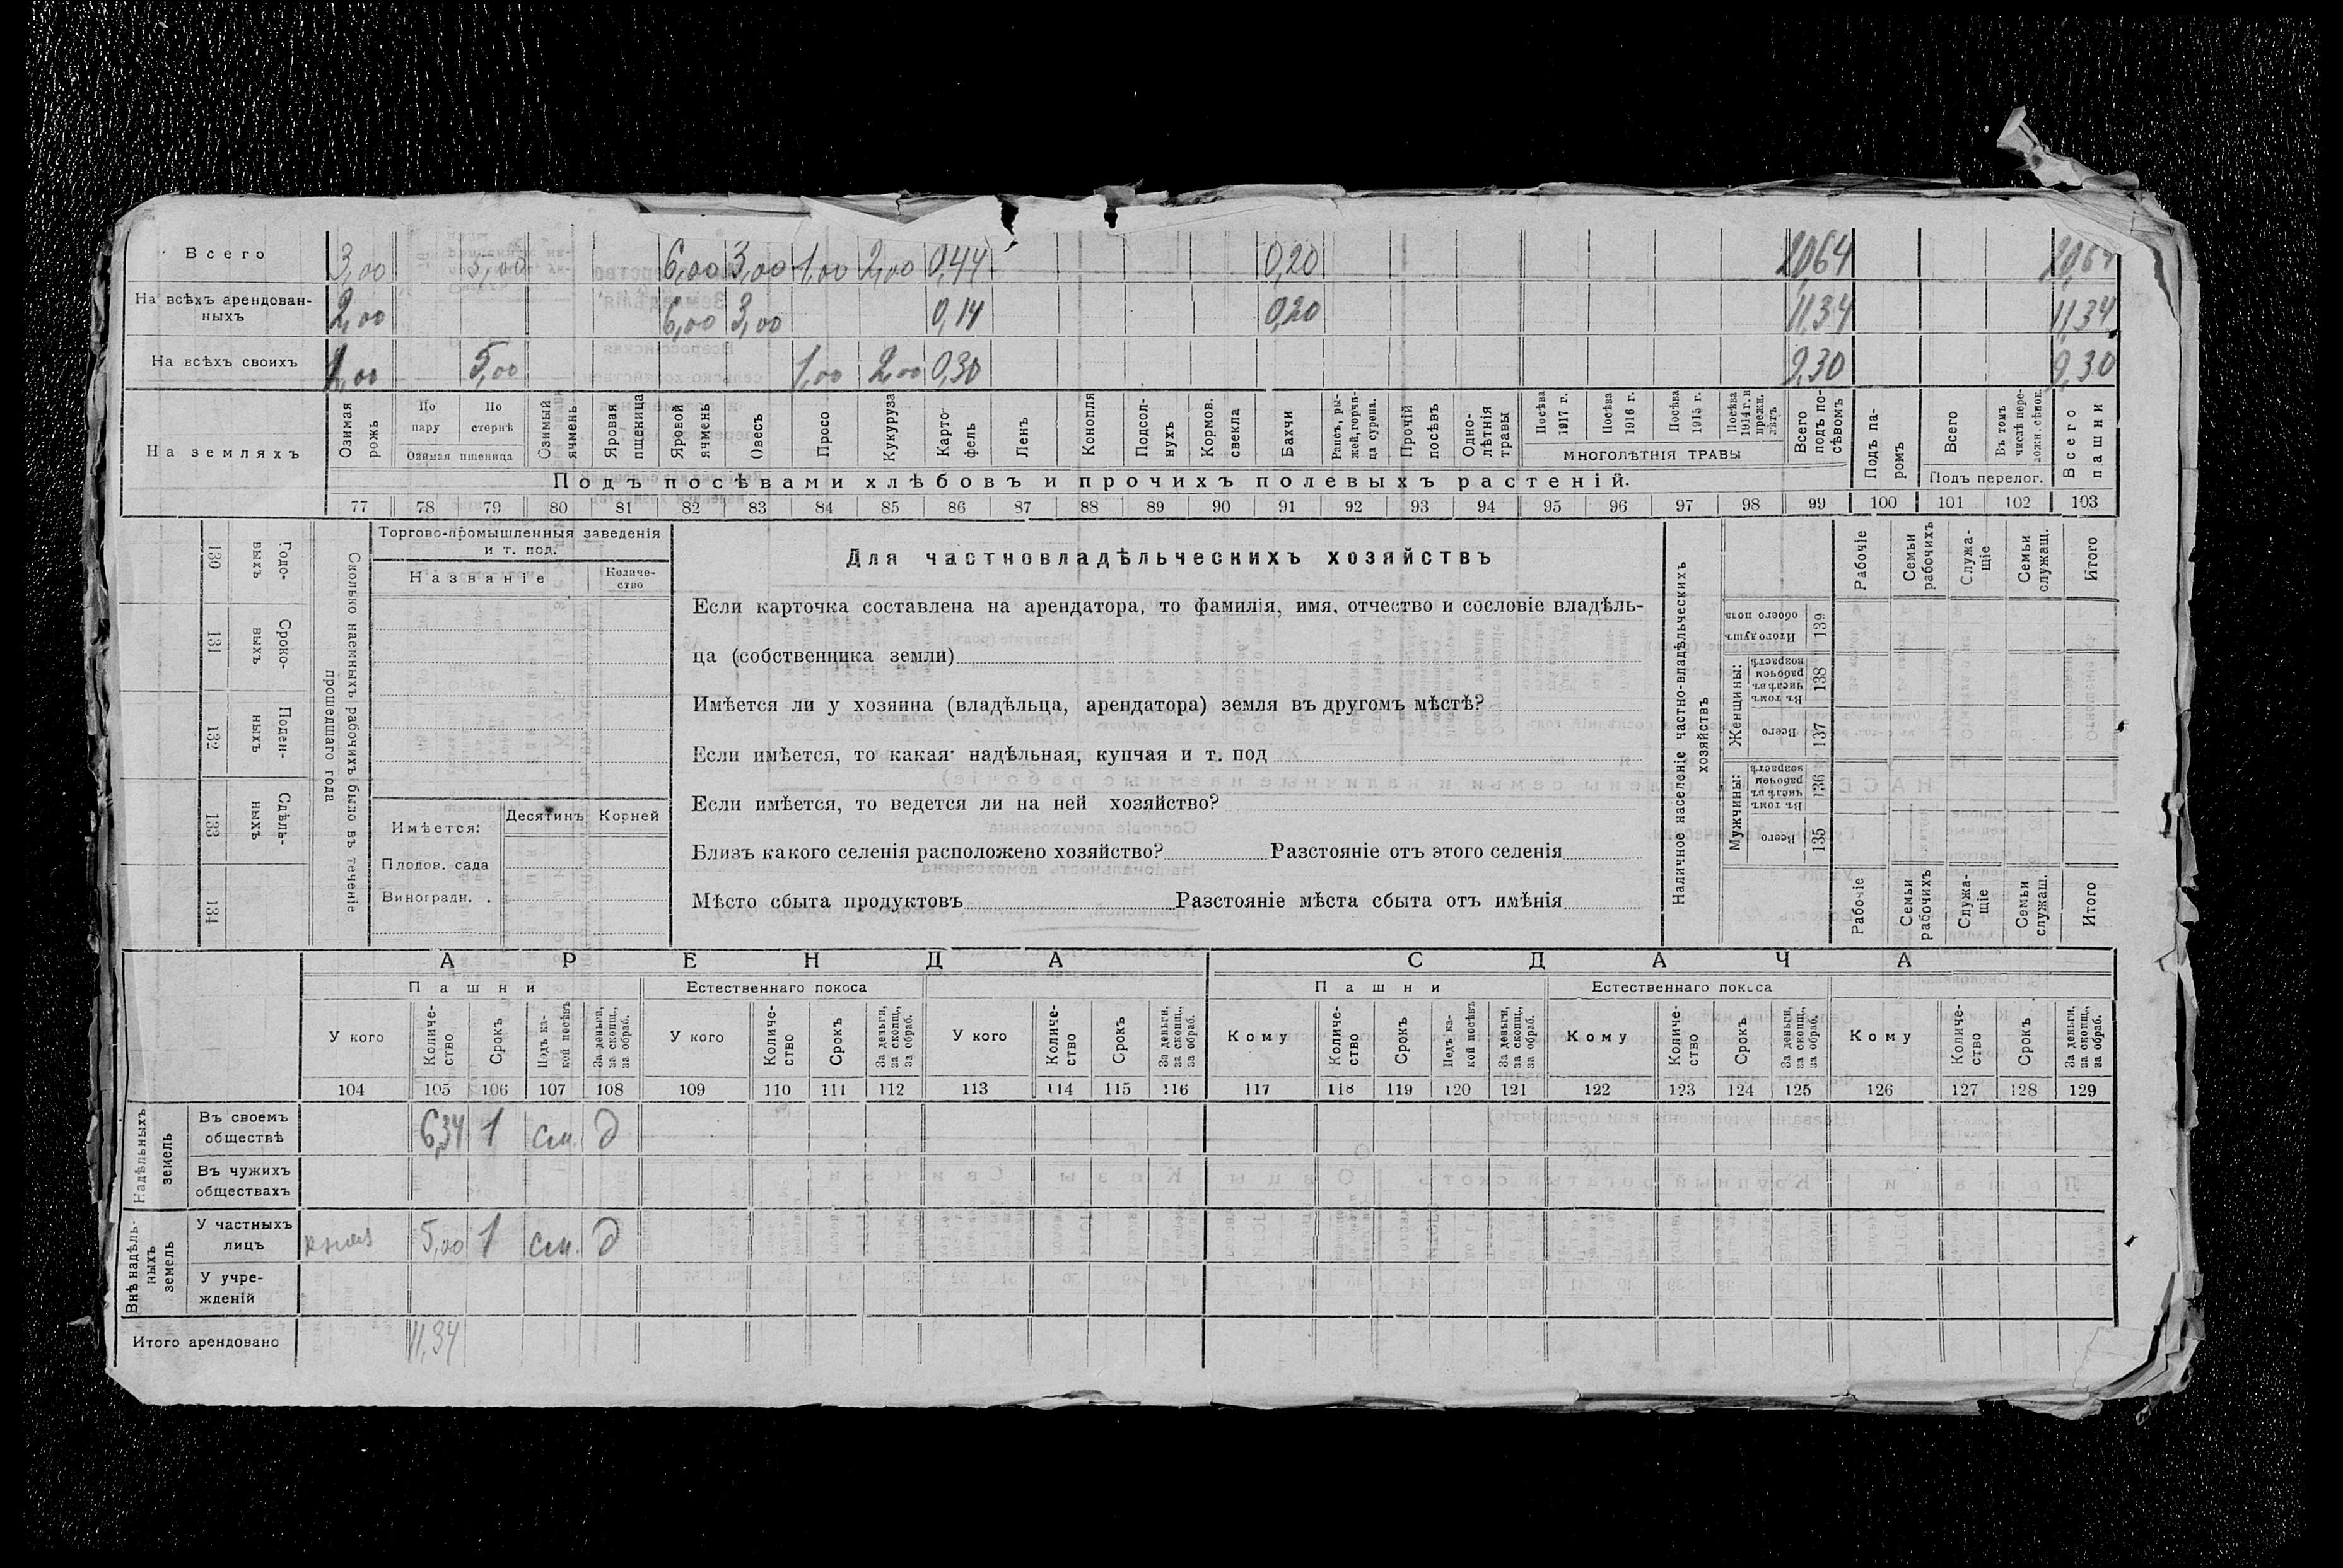 Всего 3,00 5,00 6,00 3,00 1,00 2,00 0,44 0,20 20,64 20,64
На всѣхъ арендован-
ныхъ 2,00 6,00 3,00 0,14 0,20 11,34 11,34
На всѣхъ своихъ 1,00 5,00 1,00 2,00 0,30 9,30 9,30
На земляхъ
Озимая рожь
По пару
По стернѣ
Озимая пшеница
Озимый ячмень
Яровая пшеница
Яровой ячмень
Овесъ
Просо
Кукуруза
Карто-
фель
Ленъ
Конопля
Подсол-
нухъ
Кормов. свекла
Бахчи
Рапсъ, ры-
жей, горчи-
ца сурепа.
Прочій посѣвъ
Одно-
лѣтнія травы
Посѣва 1917 г.
Посѣва 1916 г.
Посѣва 1915 г.
Посѣва 1914 г. и прежн. лѣтъ
МНОГОЛѢТНІЯ ТРАВЫ
Всего подъ по-
сѣвомъ
Подъ па-
ромъ
Всего
Въ томъ числѣ пере-
ложн. сѣнок.
Подъ перелог.
Всего пашни
Подъ посѣвами хлѣбовъ и прочихъ полевыхъ растеній.
77 78 79 80 81 82 83 84 85 86 87 88 89 90 91 92 93 94 95 96 97 98 99 100 101 102 103
130 Годо-
выхъ
131 Сроко-
выхъ
132 Поден-
ныхъ
133 Сдѣль-
ныхъ
134
Сколько наемныхъ рабочихъ было въ теченіе
прошедшаго года
Торгово-промышленныя заведенія
и т. под.
Названіе
Количе-
ство
Имѣется: Десятинъ Корней
Плодов. сада
Виноградн. .
Для частновладѣльческихъ хозяйствъ
Если карточка составлена на арендатора, то фамилія, имя, отчество и сословіе владѣль-
ца (собственника земли)
Имѣется ли у хозяина (владѣльца, арендатора) земля въ другомъ мѣстѣ?
Если имѣется, то какая: надѣльная, купчая и т. под
Если имѣется, то ведется ли на ней хозяйство?
Близъ какого селенія расположено хозяйство? Разстояніе отъ этого селенія
Мѣсто сбыта продуктовъ Разстояніе мѣста сбыта отъ имѣнія
Наличное населеніе частно-владѣльческихъ
хозяйствъ
Рабочіе
Семьи рабочихъ
Служа-
щіе
Семьи служащ.
Итого
Итого душъ обоего пола 139
Женщины:
Въ томъ числѣ въ рабочем возрастѣ 138
Всего 137
Мужчины:
Въ томъ числѣ въ рабочем возрастѣ 136
Всего 135
Рабочіе
Семьи рабочихъ
Служа-
щіе
Семьи служащ.
Итого
АРЕНДА СДАЧА
Пашни Естественнаго покоса Пашни Естественнаго покоса
У кого
Количе-
ство
Срокъ
Подъ ка-
кой посѣвъ
За деньги, за скопщ., за обраб.
У кого
Количе-
ство
Срокъ
За деньги, за скопщ., за обраб.
У кого
Количе-
ство
Срокъ
За деньги, за скопщ., за обраб.
Кому
Количе-
ство
Срокъ
Подъ ка-
кой посѣвъ
За деньги, за скопщ., за обраб.
Кому
Количе-
ство
Срокъ
За деньги, за скопщ., за обраб.
Кому
Количе-
ство
Срокъ
За деньги, за скопщ., за обраб.
104 105 106 107 108 109 110 111 112 113 114 115 116 117 118 119 120 121 122 123 124 125 126 127 128 129
Надѣльныхъ земель
Въ своемъ
обществѣ 6,34 1 см. д
Въ чужихъ
обществахъ
Внѣ надѣль-
ныхъ земель
У частныхъ
лицъ 5,00 1 см. д
У учре-
жденій
Итого арендовано 11,34